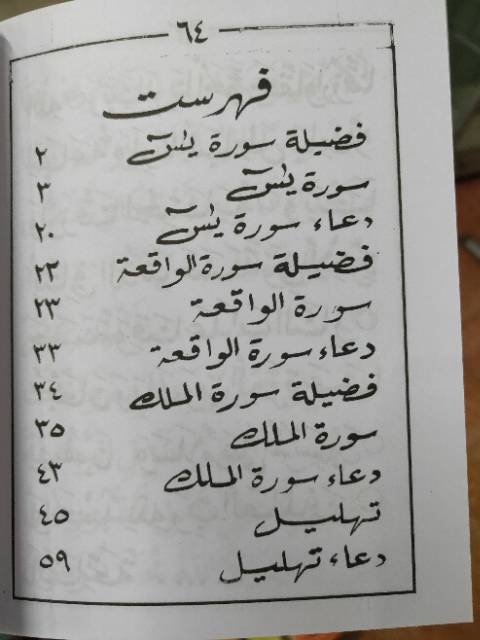 ٦٤
فهرست
فضيلة سورة يٰسٓ ٢
سورة يٰسٓ ٣
دعاء سورة يٰسٓ ٢٠
فضيلة سورة الواقعة ٢٢
سورة الواقعة ٢٣
دعاء سورة الواقعة ٣٣
فضيلة سورة الملك ٣٤
سورة الملك ٣٥
دعاء سورة الملك ٤٣
تهليل ٤٥
دعاء تهليل ٥٩